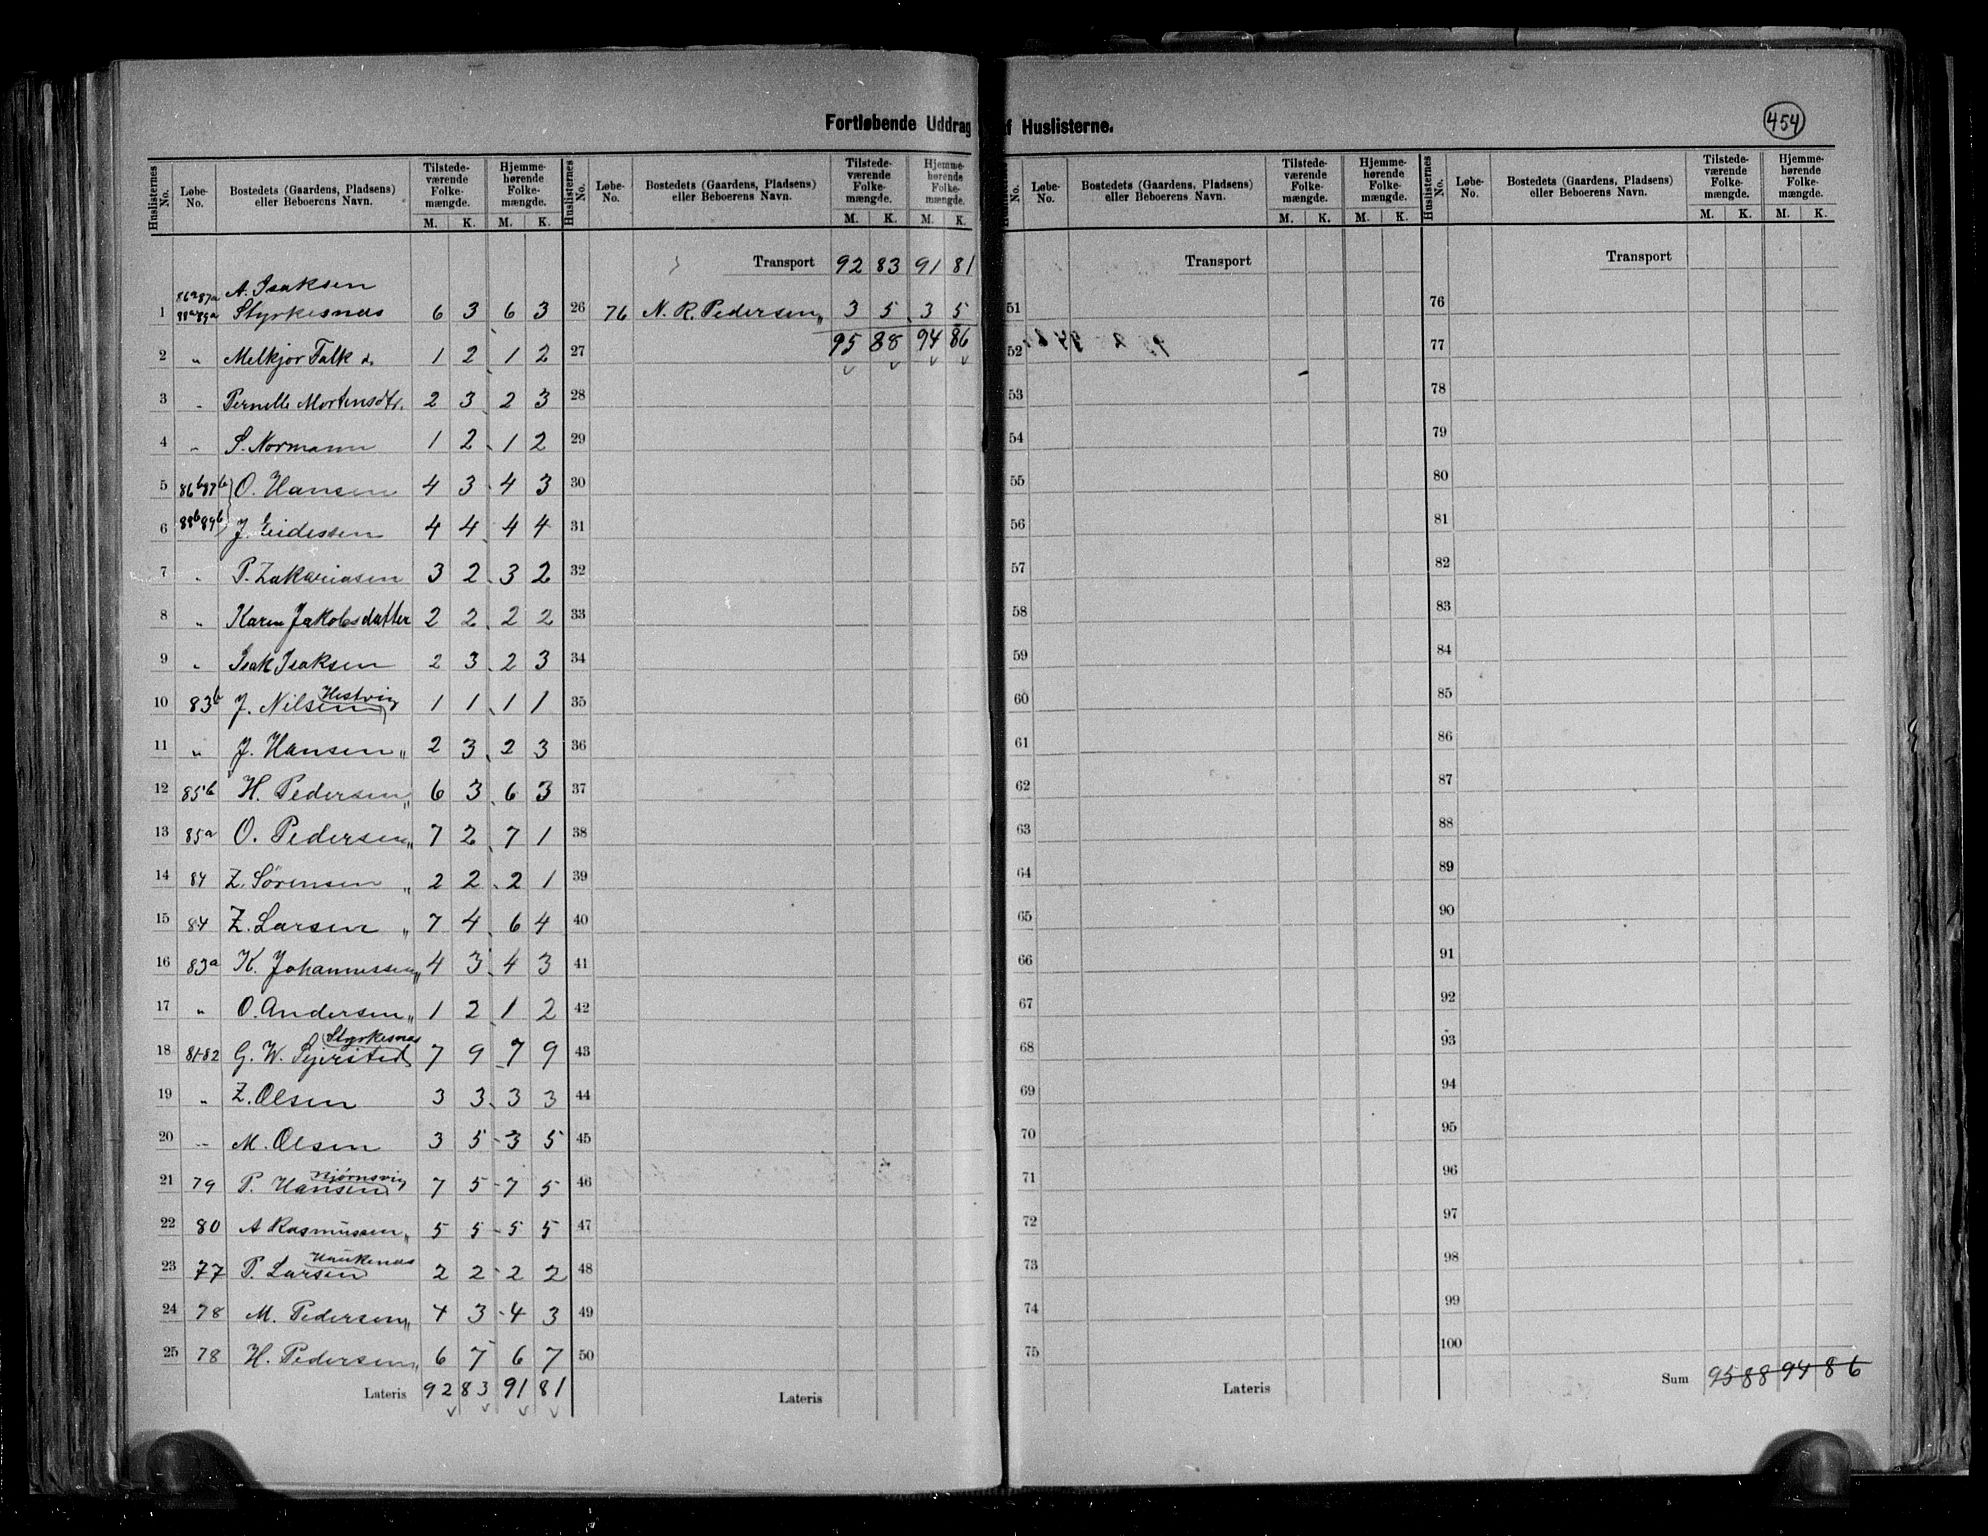 Fortløbende Uddrag af Huslisterne.
454
Huslisternes No. Løbe-No. Bostedets (Gaardens, Pladsens) eller Beboerens Navn. Tilstedeværende Folkemængde. M. K. Hjemmehørende Folkemængde. M. K.
Huslisternes No. Løbe-No. Bostedets (Gaardens, Pladsens) eller Beboerens Navn. Tilstedeværende Folkemængde. M. K. Hjemmehørende Folkemængde. M. K.
Huslisternes No. Løbe-No. Bostedets (Gaardens, Pladsens) eller Beboerens Navn. Tilstedeværende Folkemængde. M. K. Hjemmehørende Folkemængde. M. K.
Huslisternes No. Løbe-No. Bostedets (Gaardens, Pladsens) eller Beboerens Navn. Tilstedeværende Folkemængde. M. K. Hjemmehørende Folkemængde. M. K.
86a 87a A. Isaksen
1 88a 89a Styrkesnæs 6 3 6 3
2 " Melkjor Falk d. 1 2 1 2
3 " Pernelle Mortensdtr. 2 3 2 3
4 " S. Normann 1 2 1 2
5 86b 87b O. Hansen 4 3 4 3
6 88b 89b J. Eidessen 4 4 4 4
7 " P. Zakariasen 3 2 3 2
8 " Karen Jakobsdatter 2 2 2 2
9 " Isak Isaksen 2 3 2 3
10 83b J. Nilsen Hestvig 1 1 1 1
11 " J. Hansen " 2 3 2 3
12 85b H. Pedersen " 6 3 6 3
13 85a O. Pedersen " 7 2 7 1
14 84 Z. Sørensen " 2 2 2 1
15 84 Z. Larsen " 7 4 6 4
16 83a K. Johannessen " 4 3 4 3
17 " O. Andersen " 1 2 1 2
18 81-82 G. W. Sejersted Styrkesnæs 7 9 7 9
19 " Z. Olsen 3 3 3 3
20 " M. Olsen 3 5 3 5
21 79 P. Hansen Bjørnsvig 7 5 7 5
22 80 A Rasmussen " 5 5 5 5
23 77 P. Larsen Haukenæs 2 2 2 2
24 78 M. Pedersen " 4 3 4 3
25 78 H. Pedersen " 6 7 6 7
Lateris 92 83 91 81
Transport 92 83 91 81
26 76 N. R. Pedersen " 3 5 3 5
27 95 88 94 86
28
29
30
31
32
33
34
35
36
37
38
39
40
41
42
43
44
45
46
47
48
49
50
Lateris
Transport
51
52
53
54
55
56
57
58
59
60
61
62
63
64
65
66
67
68
69
70
71
72
73
74
75
Lateris
Transport
76
77
78
79
80
81
82
83
84
85
86
87
88
89
90
91
92
93
94
95
96
97
98
99
100
Sum 95 88 94 86